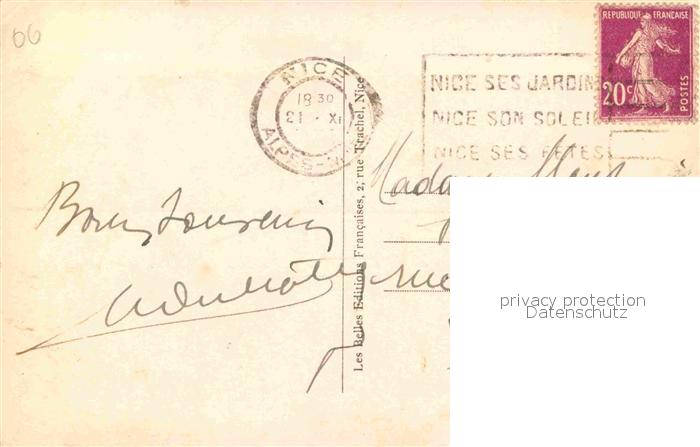 66
NICE
18 30
21 · XI
ALPES-M
NICE SES JARDINS
NICE SON SOLEIL
NICE SES FETES
REPUBLIQUE FRANÇAISE
20c
POSTES
Les Belles Editions Françaises, 2, rue Trachel, Nice
Bons Souvenirs
Madame
rue
privacy protection
Datenschutz